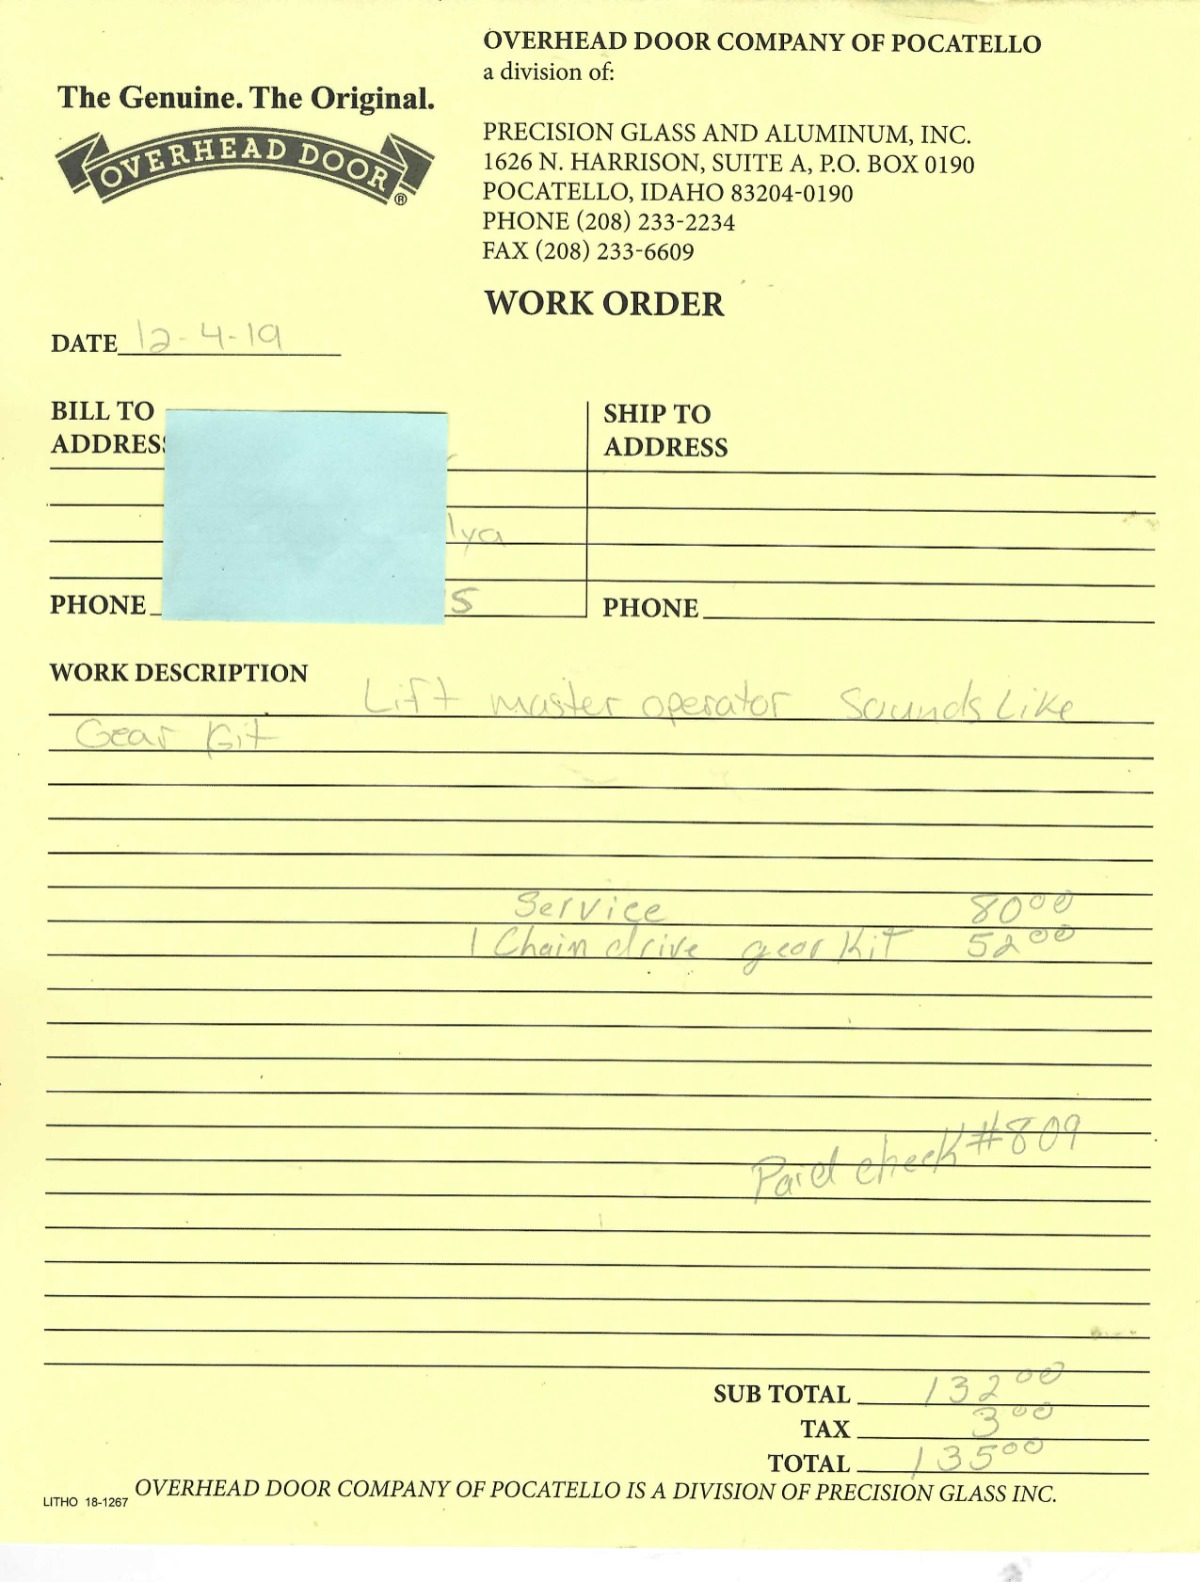 The Genuine. The Original.
OVERHEAD DOOR®
OVERHEAD DOOR COMPANY OF POCATELLO
a division of:
PRECISION GLASS AND ALUMINUM, INC.
1626 N. HARRISON, SUITE A, P.O. BOX 0190
POCATELLO, IDAHO 83204-0190
PHONE (208) 233-2234
FAX (208) 233-6609
WORK ORDER
DATE 12-4-19
BILL TO
ADDRESS
lya
PHONE 5
SHIP TO
ADDRESS
PHONE
WORK DESCRIPTION
Lift master operator Sounds Like
Gear Kit
Service 80 00
1 Chain drive gear Kit 52 00
Paid check #809
SUB TOTAL 132 00
TAX 3 00
TOTAL 135 00
OVERHEAD DOOR COMPANY OF POCATELLO IS A DIVISION OF PRECISION GLASS INC.
LITHO 18-1267